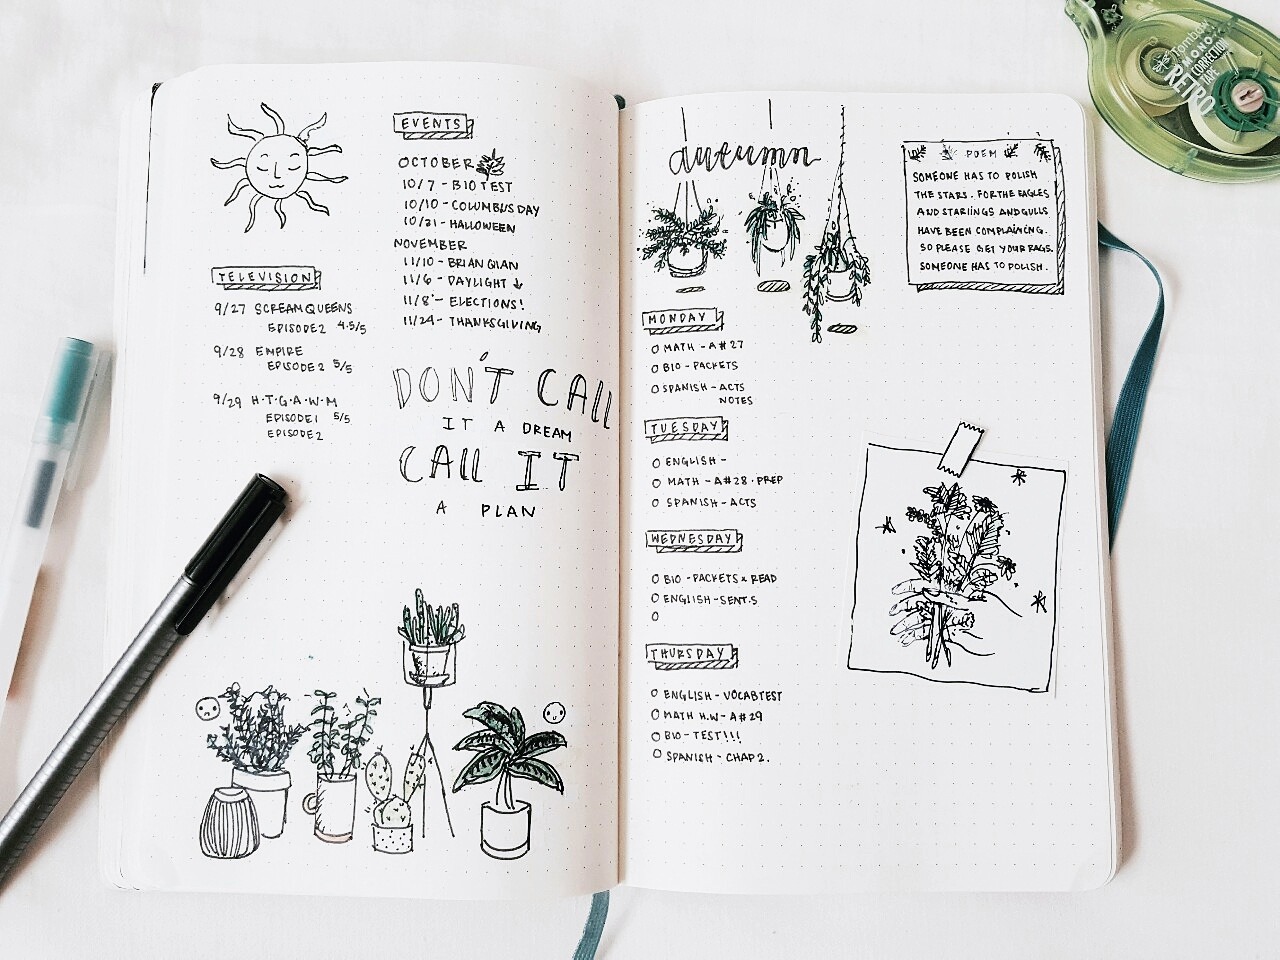 TELEVISION
9/27 SCREAM QUEENS
EPISODE 2 4.5/5
9/28 EMPIRE
EPISODE 2 5/5
9/29 H·T·G·A·W·M
EPISODE 1 5/5
EPISODE 2
EVENTS
OCTOBER
10/7 - BIO TEST
10/10 - COLUMBUS DAY
10/31 - HALLOWEEN
NOVEMBER
11/10 - BRIAN QIAN
11/6 - DAYLIGHT ↓
11/8 - ELECTIONS!
11/24 - THANKSGIVING
DON'T CALL
IT A DREAM
CALL IT
A PLAN
autumn
MONDAY
O MATH - A#27
O BIO - PACKETS
O SPANISH - ACTS
NOTES
TUESDAY
O ENGLISH -
O MATH - A#28 · PREP
O SPANISH - ACTS
WEDNESDAY
O BIO - PACKETS & READ
O ENGLISH - SENT.S
O
THURSDAY
O ENGLISH - VOCAB TEST
O MATH H.W - A#29
O BIO - TEST!!!
O SPANISH - CHAP 2.
POEM
SOMEONE HAS TO POLISH
THE STARS. FOR THE EAGLES
AND STARlINGS AND GULLS
HAVE BEEN COMPLAINING.
SO PLEASE GET YOUR RAGS.
SOMEONE HAS TO POLISH.
Tombow
MONO
RETRO
CORRECTION
TAPE